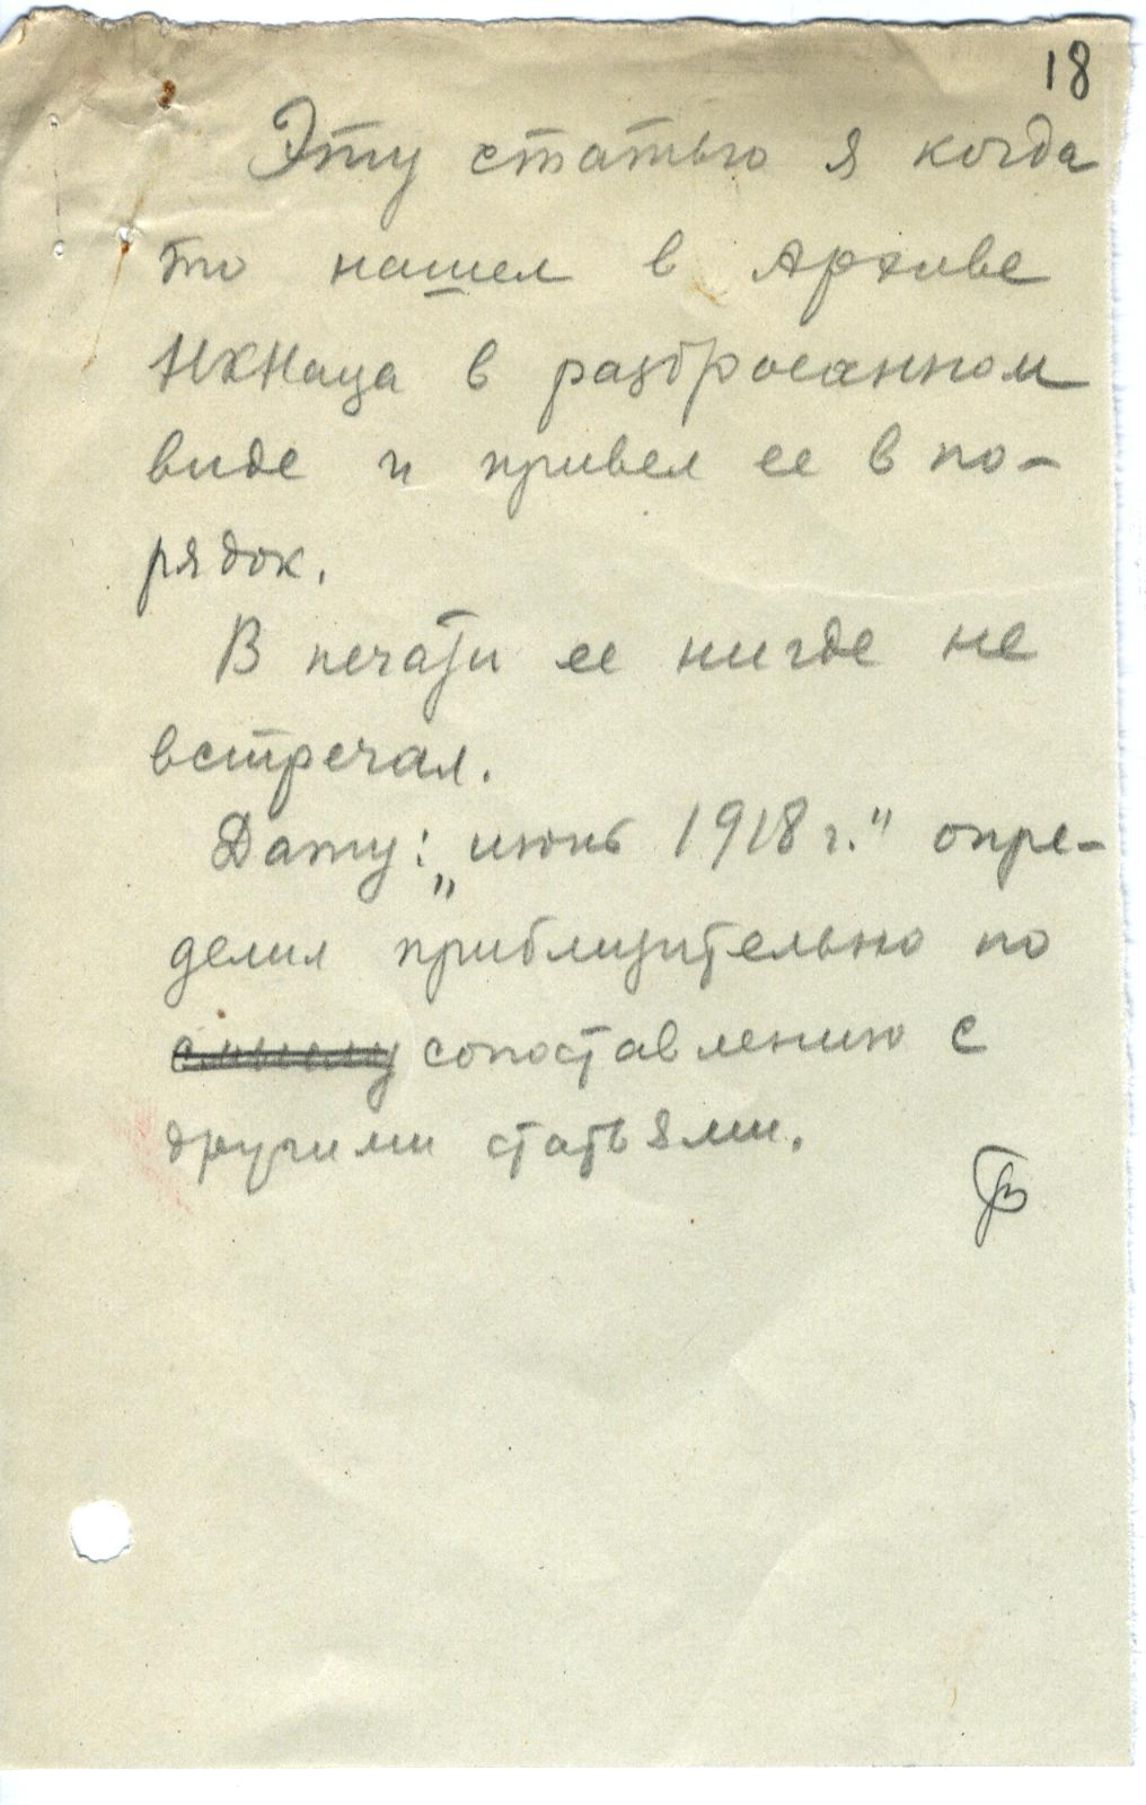 18
Эту статью я когда
то нашел в Архиве
НКНаца в разбросанном
виде и привел ее в по-
рядок.
В печати ее нигде не
встречал.
Дату: „июнь 1918 г." опре-
делил приблизительно по
смыслу сопоставлению с
другими статьями.